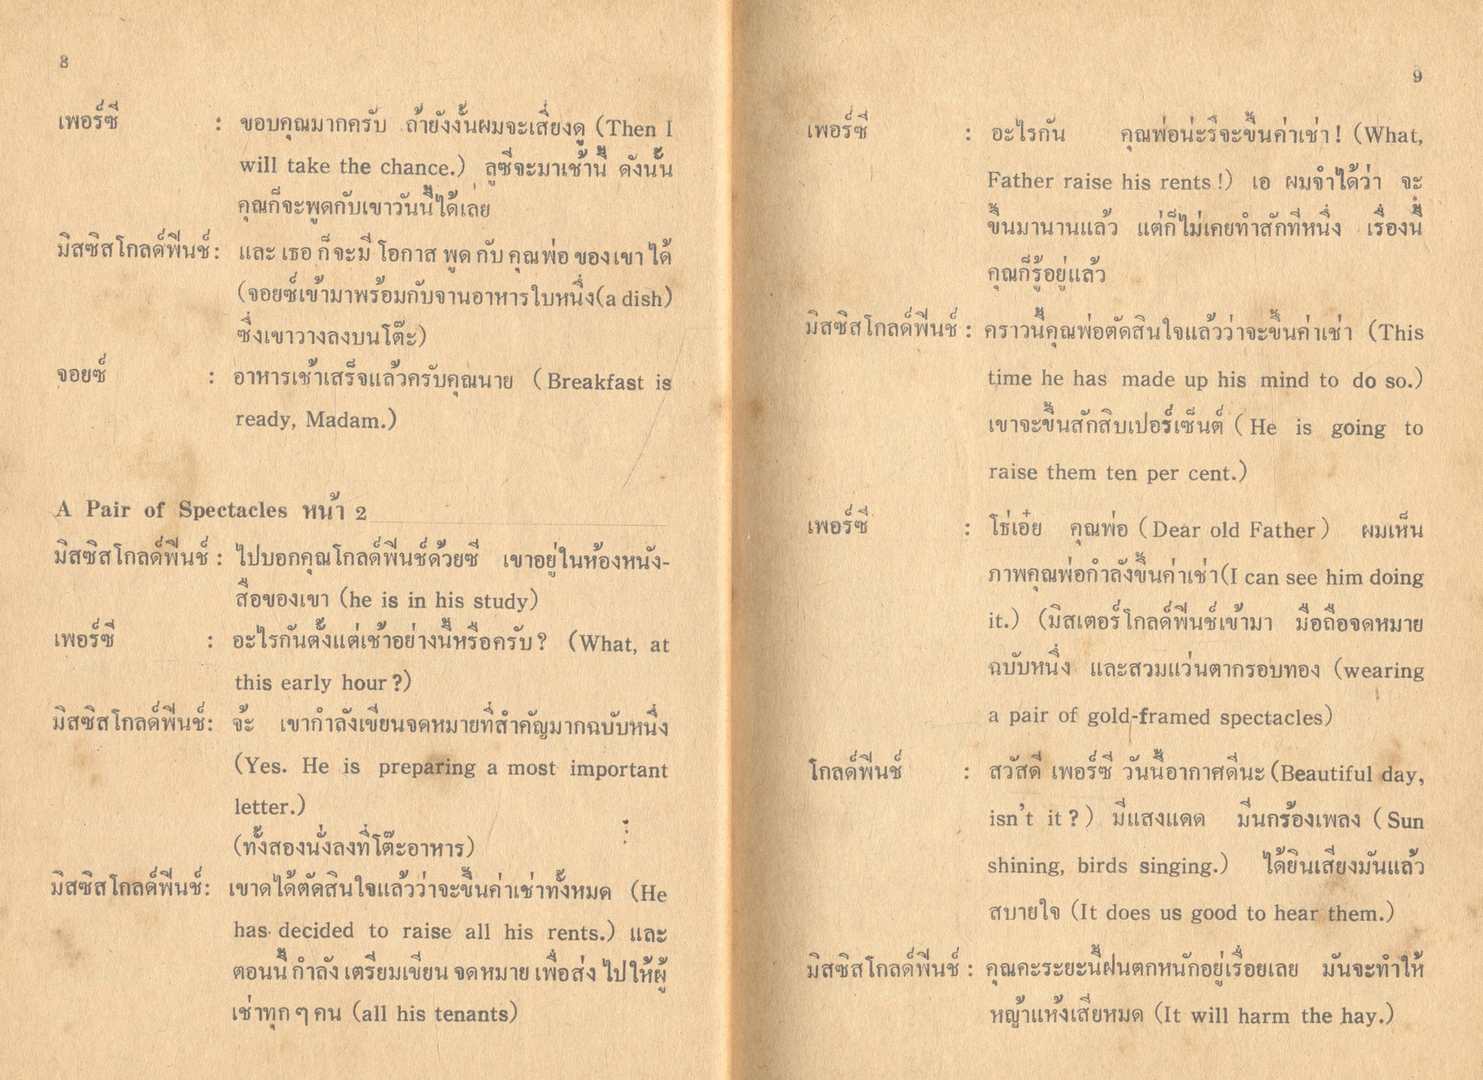 8
เพอร์ซี : ขอบคุณมากครับ ถ้ายังงั้นผมจะเสี่ยงดู (Then I
will take the chance.) ลูซีจะมาเช้านี้ ดังนั้น
คุณก็จะพูดกับเขาวันนี้ได้เล่ย
มิสซิสโกลด์ฟินช์ : และ เธอ ก็จะมี โอกาส พูด กับ คุณพ่อ ของ เขา ได้
(จอยซ์เข้ามาพร้อมกับจานอาหารใบหนึ่ง(a dish)
ซึ่งเขาวางลงบนโต๊ะ)
จอยซ์ : อาหารเช้าเสร็จแล้วครับคุณนาย (Breakfast is
ready, Madam.)
A Pair of Spectacles หน้า 2
มิสซิสโกลด์ฟินช์ : ไปบอกคุณโกลด์ฟินช์ด้วยซี เขาอยู่ในห้องหนัง-
สือของเขา (he is in his study)
เพอร์ซี : อะไรกันตั้งแต่เช้าอย่างนี้หรือครับ? (What, at
this early hour?)
มิสซิสโกลด์ฟินช์: จ้ะ เขากำลังเขียนจดหมายที่สำคัญมากฉบับหนึ่ง
(Yes. He is preparing a most important
letter.)
(ทั้งสองนั่งลงที่โต๊ะอาหาร)
มิสซิสโกลด์ฟินช์: เขาดได้ตัดสินใจแล้วว่าจะขึ้นค่าเช่าทั้งหมด (He
has decided to raise all his rents.) และ
ตอนนี้ กำลัง เตรียมเขียน จดหมาย เพื่อส่ง ไป ให้ผู้
เช่าทุก ๆ คน (all his tenants)
9
เพอร์ซี : อะไรกัน คุณพ่อน่ะรึจะขึ้นค่าเช่า! (What,
Father raise his rents!) เอ ผมจำได้ว่า จะ
ขึ้นมานานแล้ว แต่ก็ไม่เคยทำสักที่หนึ่ง เรื่องนี้
คุณก็รู้อยู่แล้ว
มิสซิสโกลด์ฟินช์ : คราวนี้คุณพ่อตัดสินใจแล้วว่าจะขึ้นค่าเช่า (This
time he has made up his mind to do so.)
เขาจะขึ้นสักสิบเปอร์เซ็นต์ (He is going to
raise them ten per cent.)
เพอร์ซี : โธ่เอ๋ย คุณพ่อ (Dear old Father) ผมเห็น
ภาพคุณพ่อกำลังขึ้นค่าเช่า(I can see him doing
it.) (มิสเตอร์โกลด์ฟินช์เข้ามา มือถือจดหมาย
ฉบับหนึ่ง และสวมแว่นตากรอบทอง (wearing
a pair of gold-framed spectacles)
โกลด์ฟินช์ : สวัสดี เพอร์ซี วันนี้อากาศดีนะ (Beautiful day,
isn't it?) มีแสงแดด มีนกร้องเพลง (Sun
shining, birds singing.) ได้ยินเสียงมันแล้ว
สบายใจ (It does us good to hear them.)
มิสซิสโกลด์ฟินช์ : คุณคะระยะนี้ฝนตกหนักอยู่เรื่อยเลย มันจะทำให้
หญ้าแห้งเสียหมด (It will harm the hay.)